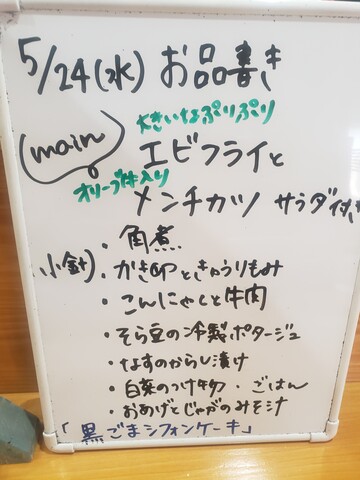 5/24(水) お品書き
大きいなぷりぷり
main エビフライと
オリーブ牛入り
メンチカツ サラダ付き
・角煮
小針)・かき卵ときゅうりもみ
・こんにゃくと牛肉
・そら豆の冷製ポタージュ
・なすのからし漬け
・白菜のつけ物・ごはん
・おあげとじゃがのみそ汁
「黒ごまシフォンケーキ」